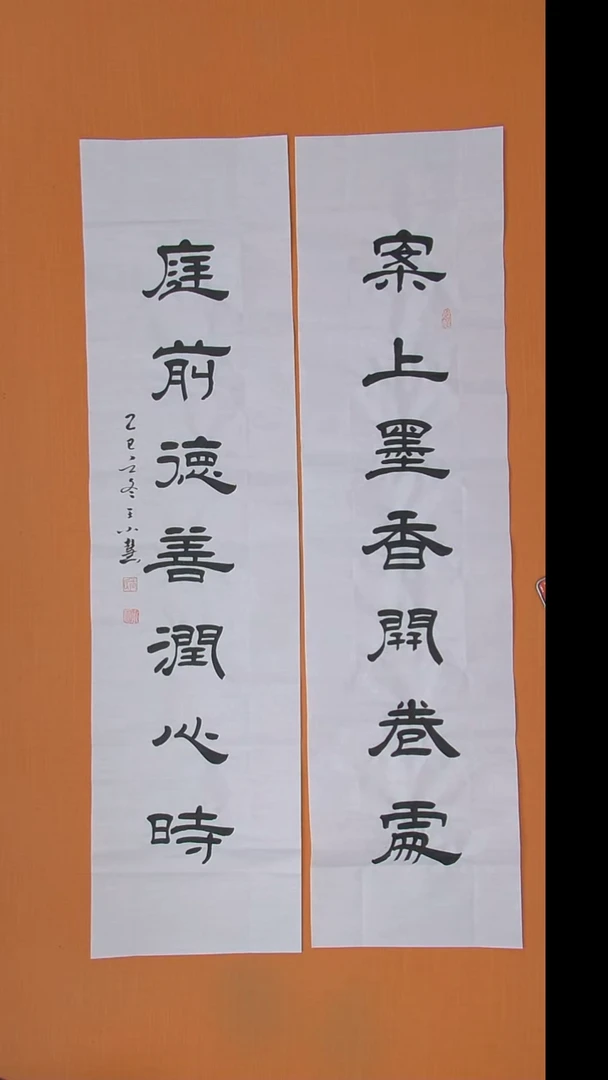 案上墨香開卷處
庭前德善潤心時
乙巳立冬王小慧